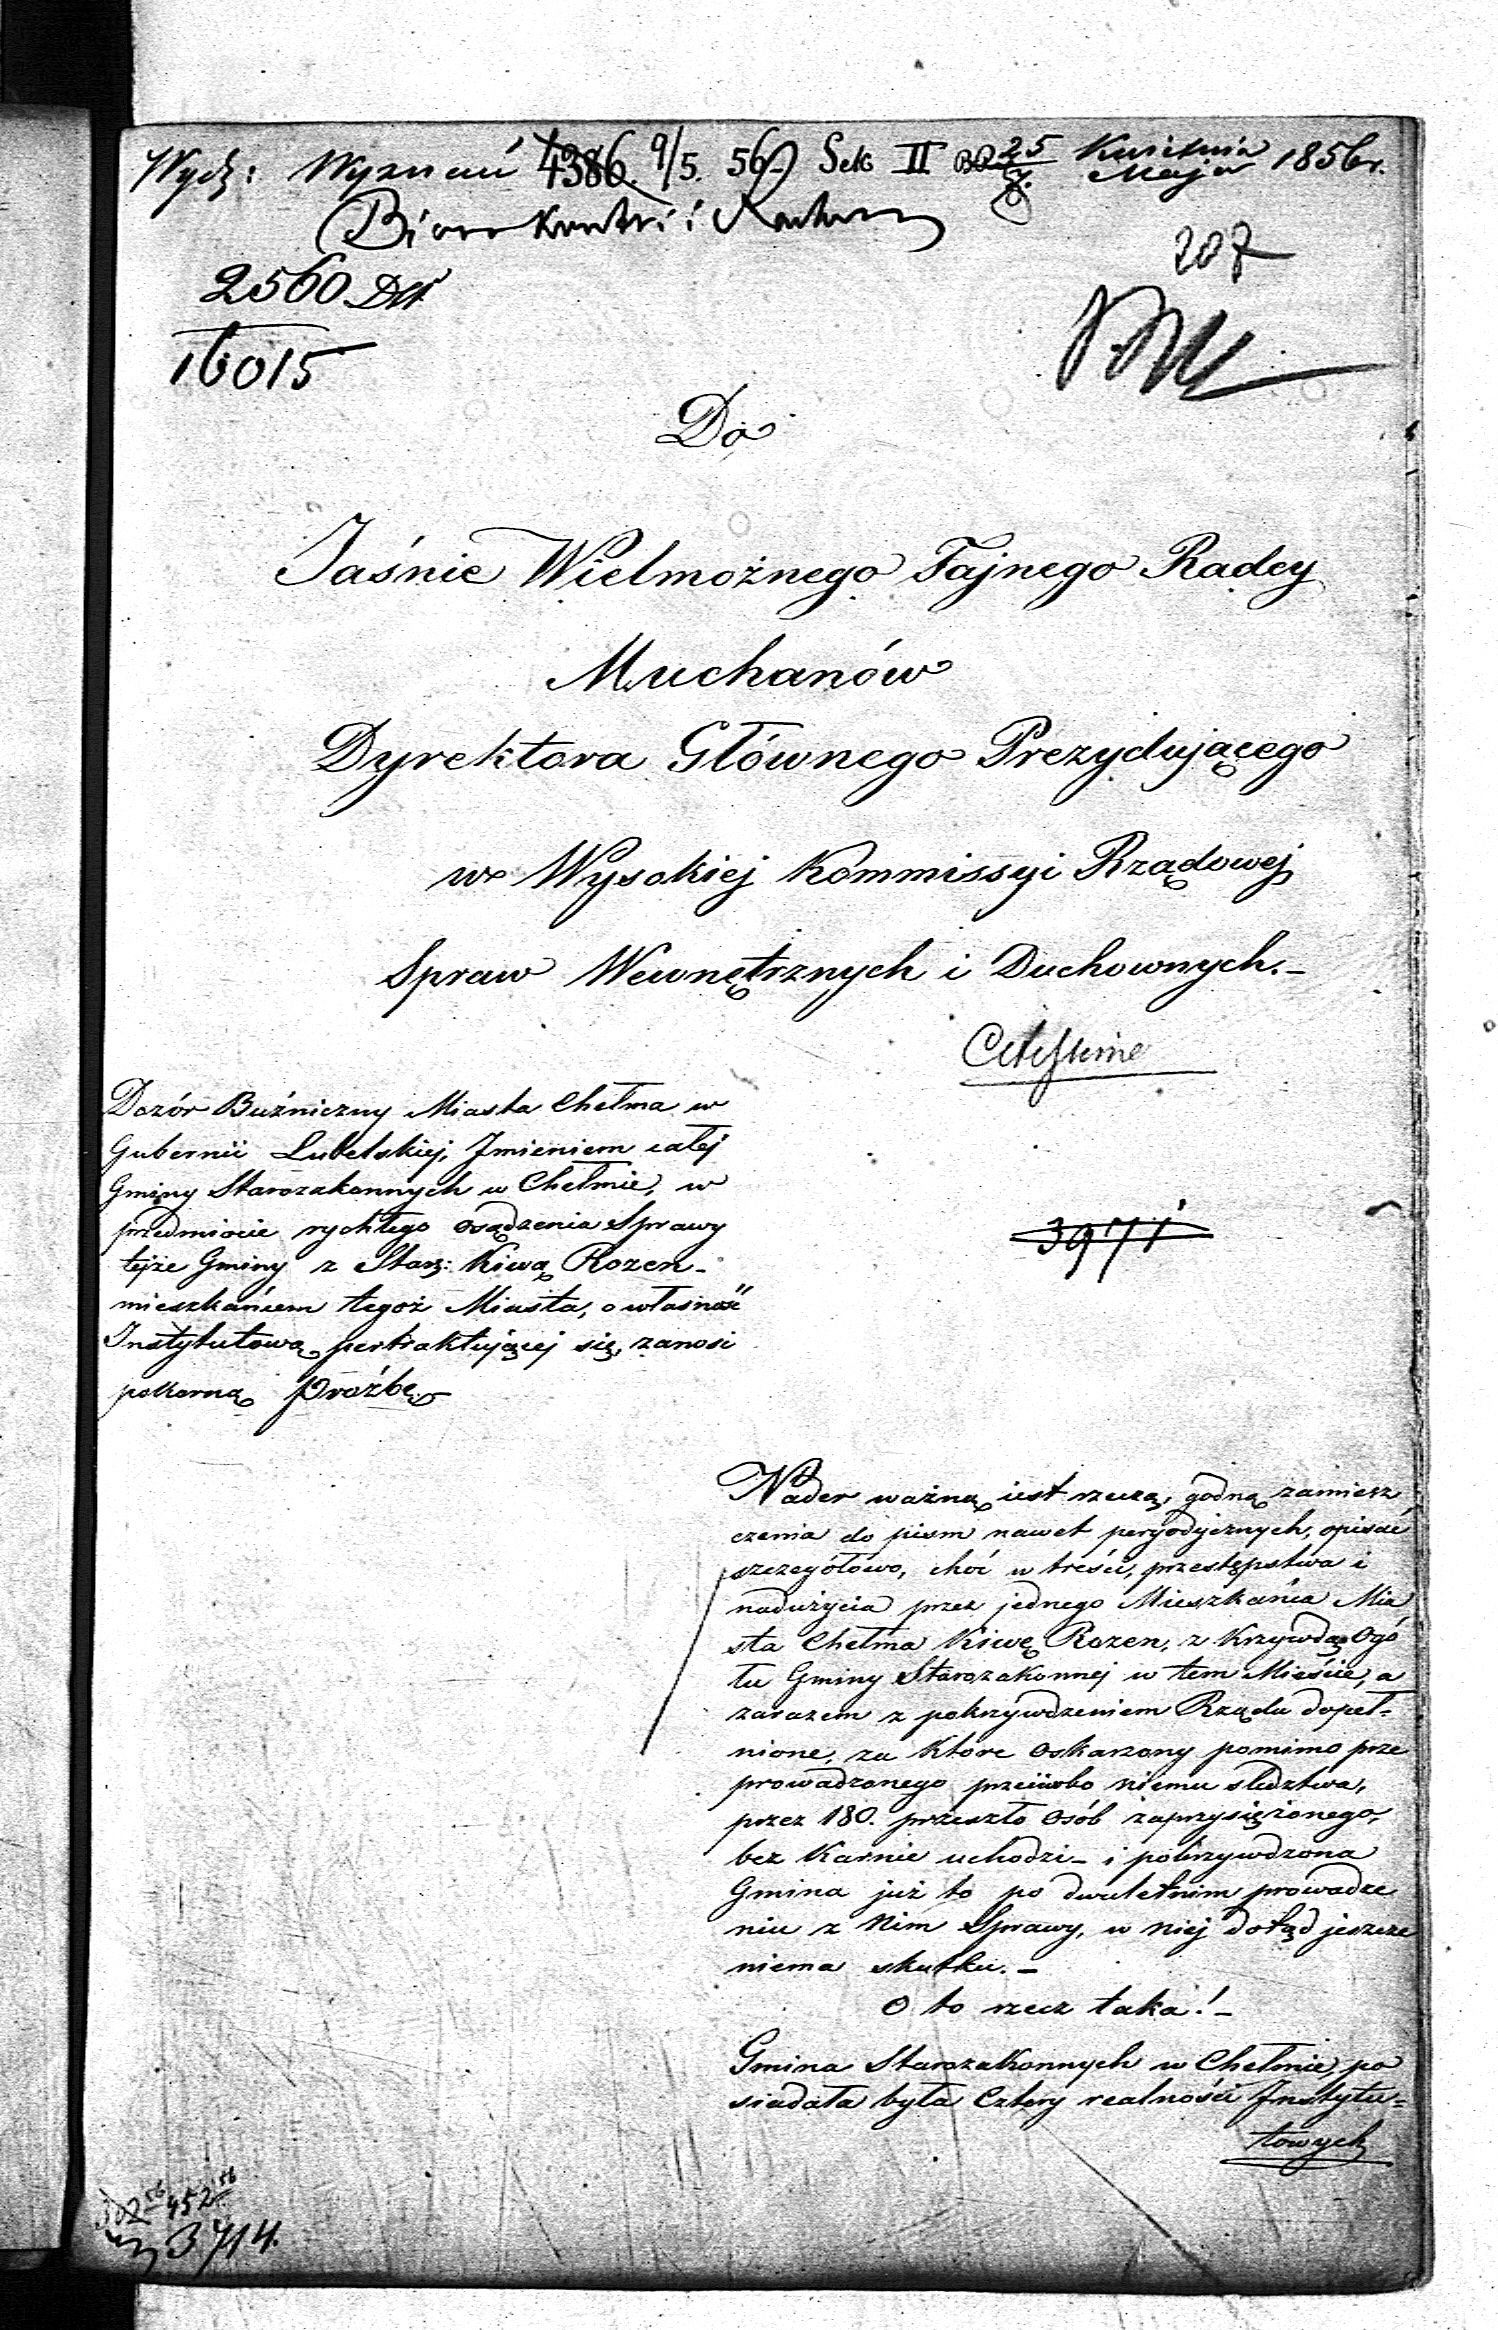 Wydz: Wyznań 4386. 9/5. 56 Sek II 25 Kwietnia
7. Maja 1856 r.
Biuro Kontroli i
2560
16015
207
Do
Jaśnie Wielmożnego Tajnego Radcy
Muchanów
Dyrektora Głównego Prezydującego
w Wysokiej Kommissyi Rządowej
Spraw Wewnętrznych i Duchownych.–
Dozór Bużniczny Miasta Chełma w
Gubernii Lubelskiej, Imieniem całej
Gminy Starozakonnych w Chełmie, w
przedmiocie rychłego osądzenia Sprawy
tejże Gminy z Starz: Kiwą Rozen–
mieszkańcem tegoż Miasta, o własność
Instytutową pertraktującej się, zanosi
pokorną Proźbę
3971
Nader ważną iest rzeczą, godną zamiesz
czenia do pism nawet peryodycznych, opisać
szczegółowo, choć w treści, przestępstwa i
nadużycia przez jednego Mieszkańca Mia
sta Chełma Kiwę Rozen, z Krzywdą Ogó
łu Gminy Starozakonnej w tem Mieście, a
zarazem z pokrzywdzeniem Rządu dopeł=
nione, za które oskarzony pomimo prze
prowadzonego przeciwko niemu sledztwa,
przez 180. przeszło osób zaprzysiężonego,
bez Karnie uchodzi – i pokrzywdzona
Gmina już to po dwuletnim prowadze
niu z Nim Sprawy, w niej dotąd jeszcze
niema skutku.–
O to rzecz taka!–
Gmina Starozakonnych w Chełmie, po
siadała była cztery realności Instytu=
towych
452 56
3714.